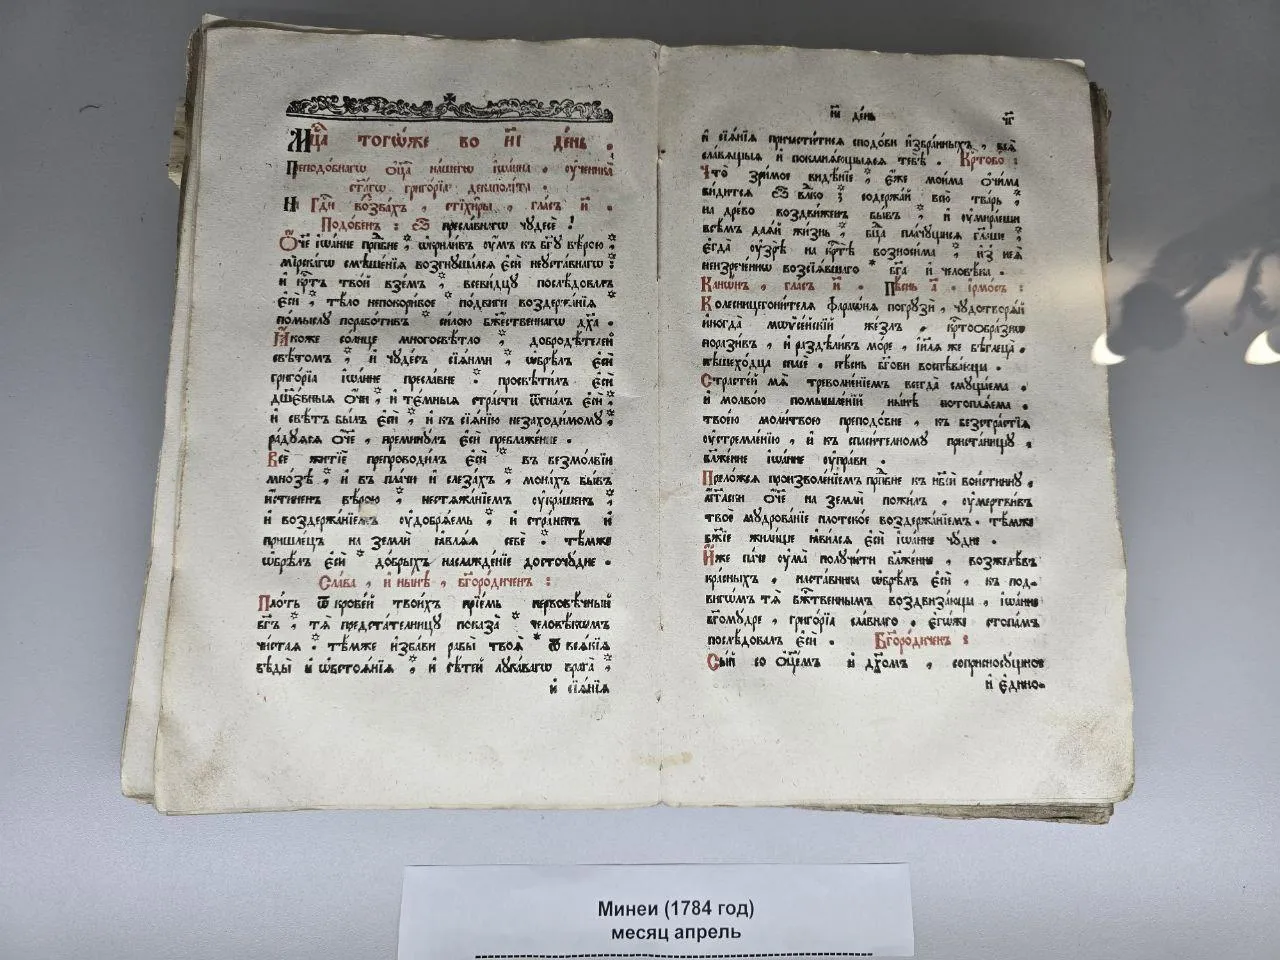 Мц҃а тогѡ́же во и҃і де́нь .
Преподо́бнагѡ ѻ҆ц҃а̀ на́шегѡ і҆ѡа́нна . ᲂу҆ченика̀
ст҃а́гѡ григо́рїа декаполі́та .
Н Гдⷭ҇и воззва́хъ , стїхи́ры , гла́съ и҃ .
Подо́бенъ : Ѽ пресла́внагѡ чꙋдесѐ !
Ѻ҆́ч҃е і҆ѡа́нне прпⷣбне , ѡ҆крили́въ ᲂу҆́мъ къ бг҃ꙋ вѣ́рою :
мїрска́гѡ смѣше́нїѧ возгнꙋша́лсѧ є҆сѝ неꙋста́внагѡ :
и҆ крⷭ҇тъ тво́й взе́мъ , всеви́дцꙋ послѣ́довалъ
є҆сѝ , тѣ́ло непокори́вое по́двиги воздержа́нїѧ
по́мыслꙋ порабо́тивъ си́лою бж҃е́ственнагѡ дх҃а .
Ꙗ҆́коже со́лнце многосвѣ́тло , добродѣ́телей
свѣ́томъ , и҆ чꙋде́съ сїѧ́ньми , ѡ҆брѣ́лъ є҆сѝ
григо́рїа і҆ѡа́нне пресла́вне . просвѣти́лъ є҆сѝ
дꙋшє́вныѧ ѻ҆́чи , и҆ тє́мныѧ стра̑сти ѿгна́лъ є҆сѝ ,
и҆ свѣ́тъ бы́лъ є҆сѝ , и҆ къ сїѧ́нїю незаходи́момꙋ ,
ра́дꙋѧсѧ ѻ҆́ч҃е , премину́лъ є҆сѝ пребла́женне .
Всѐ житїѐ препроводи́лъ є҆сѝ въ безмо́лвїи
мно́зѣ , и҆ въ пла́чи и҆ слеза́хъ , мона́хъ бы́въ
и҆́стиненъ вѣ́рою , нестѧжа́нїемъ ᲂу҆кра́шенъ ,
и҆ воздержа́нїемъ ᲂу҆добрѧ́емь , и҆ стра́ненъ и҆
пришле́цъ на землѝ ꙗ҆влѧ́ѧ себѐ . тѣ́мже
ѡ҆брѣ́лъ є҆сѝ до́брыхъ наслажде́нїе досточꙋ́дне .
Сла́ва , и҆ ны́нѣ , бг҃оро́диченъ :
Пло́ть ѿ крове́й твои́хъ прїе́мь первовѣ́чный
бг҃ъ , тѧ̀ предста́телницꙋ показа̀ человѣ́кѡмъ
чи́стаѧ . тѣ́мже и҆зба́ви рабы̀ твоѧ̑ ѿ всѧ́кїѧ
бѣды̀ и҆ ѡ҆бстоѧ́нїѧ , и҆ сѣ́тей лꙋка́вагѡ врага̀ ,
и҆ сїѧ́нїѧ
и҃і де́нь
и҆ сїѧ́нїѧ причасти́тисѧ сподо́би и҆збра́нныхъ , всѧ̑
сла́вѧщыѧ и҆ покланѧ́ющыѧсѧ тебѣ̀ . Крⷭ҇тово :
Что̀ зри́мое видѣ́нїе , є҆́же мои́ма ѻ҆чи́ма
ви́дитсѧ ѽ влⷣко ; содержа́й всю̀ тва́рь ,
на дре́во воздви́женъ бы́въ , и҆ ᲂу҆мира́еши
всѣ́мъ даѧ́й жи́знь , бц҃а пла́чꙋщисѧ глаго́лаше ,
є҆гда̀ ᲂу҆зрѣ̀ на крⷭ҇тѣ̀ возноси́ма , и҆з неѧ̀
неизрече́ннѡ возсїѧ́вшаго бг҃а и҆ человѣ́ка .
Канѡ́нъ , гла́съ и҃ . Пѣ́снь а҃ . і҆рмо́съ :
Колесницегони́телѧ фараѡ́нѧ погрꙋзѝ , чꙋдотворѧ́й
и҆ногда̀ мѡѷсе́йскїй же́злъ , крⷭ҇тоѡбра́знѡ
порази́въ , и҆ раздѣли́въ мо́ре , і҆и҃лѧ же бѣглеца̀ .
пѣшехо́дца спасѐ . пѣ́снь бг҃ови воспѣва́юща .
Страсте́й мѧ̀ треволне́нїемъ всегда̀ смꙋща́ема .
и҆ молво́ю помышле́нїй ны́нѣ потоплѧ́ема .
твое́ю моли́твою преподо́бне , къ безстра́стїѧ
ᲂу҆стремле́нїю , и҆ къ спаси́телномꙋ приста́нищꙋ ,
бл҃же́нне і҆ѡа́нне ᲂу҆пра́ви .
Преложе́сѧ произволе́нїемъ прпⷣбне къ нбⷭ҇нѣй вои́стинꙋ ,
а҆́гг҃лски ѻ҆́ч҃е на землѝ пожи́лъ , ᲂу҆мертви́въ
твоѐ мꙋдрова́нїе плотско́е воздержа́нїемъ . тѣ́мже
бж҃їе жили́ще ꙗ҆ви́лсѧ є҆сѝ і҆ѡа́нне чꙋ́дне .
И҆́же па́че ᲂу҆ма̀ полꙋчи́ти бл҃же́нне , возжелѣ́въ
кра́сныхъ , наста́вника ѡ҆брѣ́лъ є҆сѝ , къ по́д-
вигѡмъ тѧ̀ бжⷭ҇твеннымъ воздвиза́юща , і҆ѡа́нне
бг҃омꙋ́дре , григо́рїа сла́внаго . є҆гѡ́же стопа́мъ
послѣ́довалъ є҆сѝ . Бг҃оро́диченъ :
Сы́й со ѻ҆ц҃е́мъ и҆ дх҃омъ , соприсносꙋ́щное
и҆ є҆дино-
Минеи (1784 год)
месяц апрель